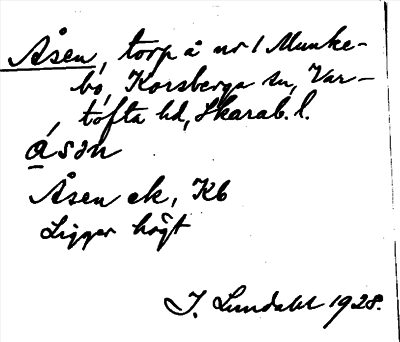 Åsen, torp å nr 1 Munke-
bo, Korsberga sn, Var-
tofta hd, Skarab. l.
ásən
Åsen ek, Kb
Ligger högt
J. Lundahl 1928.